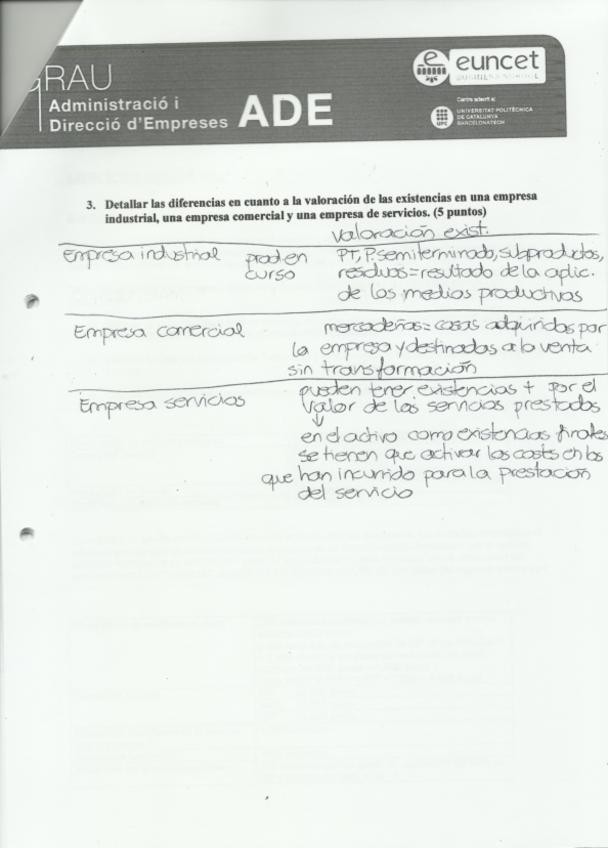 GRAU
Administració i
Direcció d'Empreses ADE
euncet
BUSINESS SCHOOL
Centre adscrit a:
UPC
UNIVERSITAT POLITÈCNICA
DE CATALUNYA
BARCELONATECH
3. Detallar las diferencias en cuanto a la valoración de las existencias en una empresa
industrial, una empresa comercial y una empresa de servicios. (5 puntos)
valoración exist.
Empresa industrial prod en PT, P.semiterminado, subproductos,
curso residuos = resultado de la aplic.
de los medios productivos
Empresa comercial mercaderías = cosas adquiridas por
la empresa y destinadas a la venta
sin transformación
Empresa servicios pueden tener existencias + por el
valor de los servicios prestados
↓
en el activo como existencias finales
se tienen que activar los costs en los
que han incurrido para la prestación
del servicio